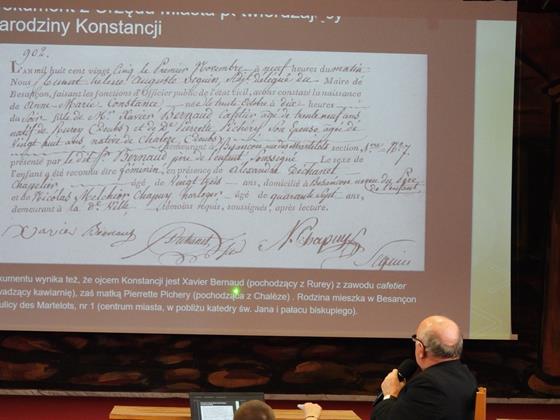 okument z Urzędu Miasta potwierdzający
arodziny Konstancji
902.
L'AN mil huit cent vingt Cinq le Premier Novembre à neuf heures du matin
Nous Clement melesse auguste Seguin, adj. délégué du Maire de
Besançon, faisant les fonctions d'Officier public de l'état civil, avons constaté la naissance
de Anne-Marie Constance née le trente Octobre à dix heures
du Soir fille de Mr. Xavier Bernaud Cafetier âgé de trente neuf ans
natif de Rurey (Doubs) et de De. Pierrette Pichery Son Epouse, âgée de
Vingt huit ans native de Chalèze (Doubs)
demeurant à Besançon rue des Martelots section Nro. 1
présenté par le dit Sr. Bernaud père de l'enfant Le sexe de
l'enfant a été reconnu être féminin, en présence de alexandre Dechanet
Chapelier âgé de Vingt trois ans, domicilié à Besançon
et de Nicolas Melchior Chapuy horloger âgé de quarante Sept ans,
demeurant à la de. Ville témoins requis, soussignés, après lecture.
Xavier Bernaud Dechanet N. Chapuy
Seguin
kumentu wynika też, że ojcem Konstancji jest Xavier Bernaud (pochodzący z Rurey) z zawodu cafetier
wadzący kawiarnię), zaś matką Pierrette Pichery (pochodząca z Chalèze) . Rodzina mieszka w Besançon
ulicy des Martelots, nr 1 (centrum miasta, w pobliżu katedry św. Jana i pałacu biskupiego).